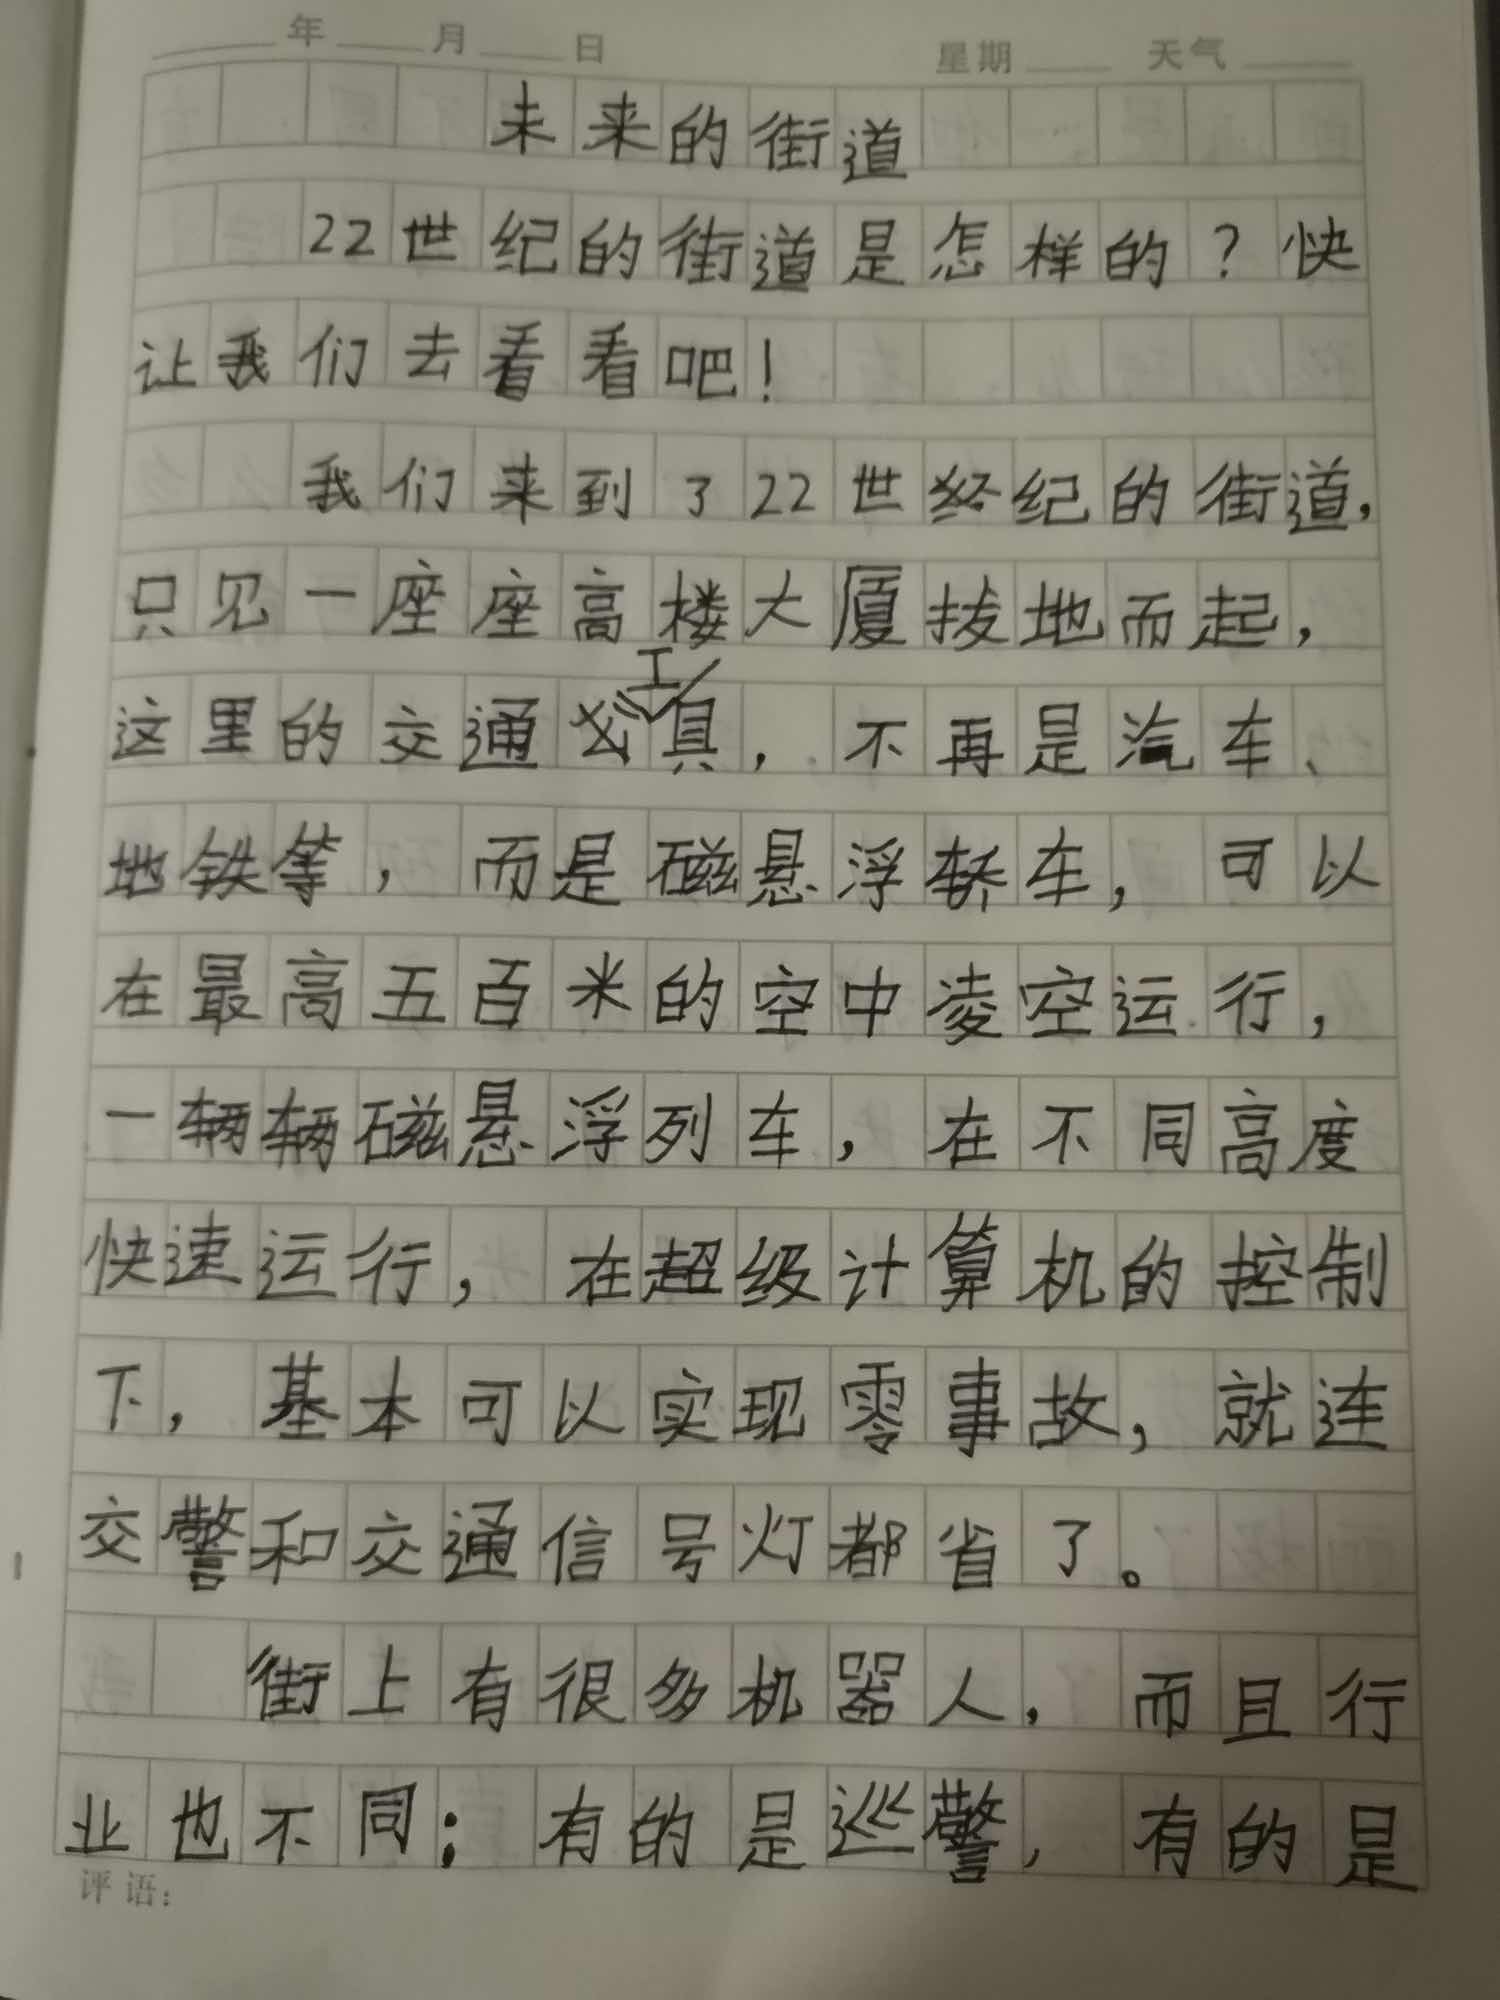 年 月 日 星期 天气
未来的街道
22世纪的街道是怎样的？快
让我们去看看吧！
我们来到了22世纪的街道，
只见一座座高楼大厦拔地而起，
这里的交通工具，不再是汽车、
地铁等，而是磁悬浮轿车，可以
在最高五百米的空中凌空运行，
一辆辆磁悬浮列车，在不同高度
快速运行，在超级计算机的控制
下，基本可以实现零事故，就连
交警和交通信号灯都省了。
街上有很多机器人，而且行
业也不同：有的是巡警，有的是
评语：